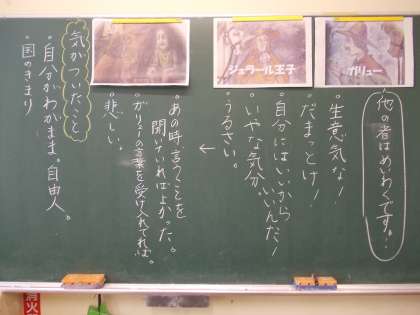 ガリュー
他の者はめいわくです。
ジェラール王子
・生意気な！
・だまっとけ！
・自分にはいいからいいんだ！
・いやな気分。
・うるさい。
↓
・あの時、言うことを
聞いていればよかった。
・ガリューの言葉を受け入れてれば。
・悲しい。
気がついたこと
・自分がわがまま。自由人。
・国のきまり
消火